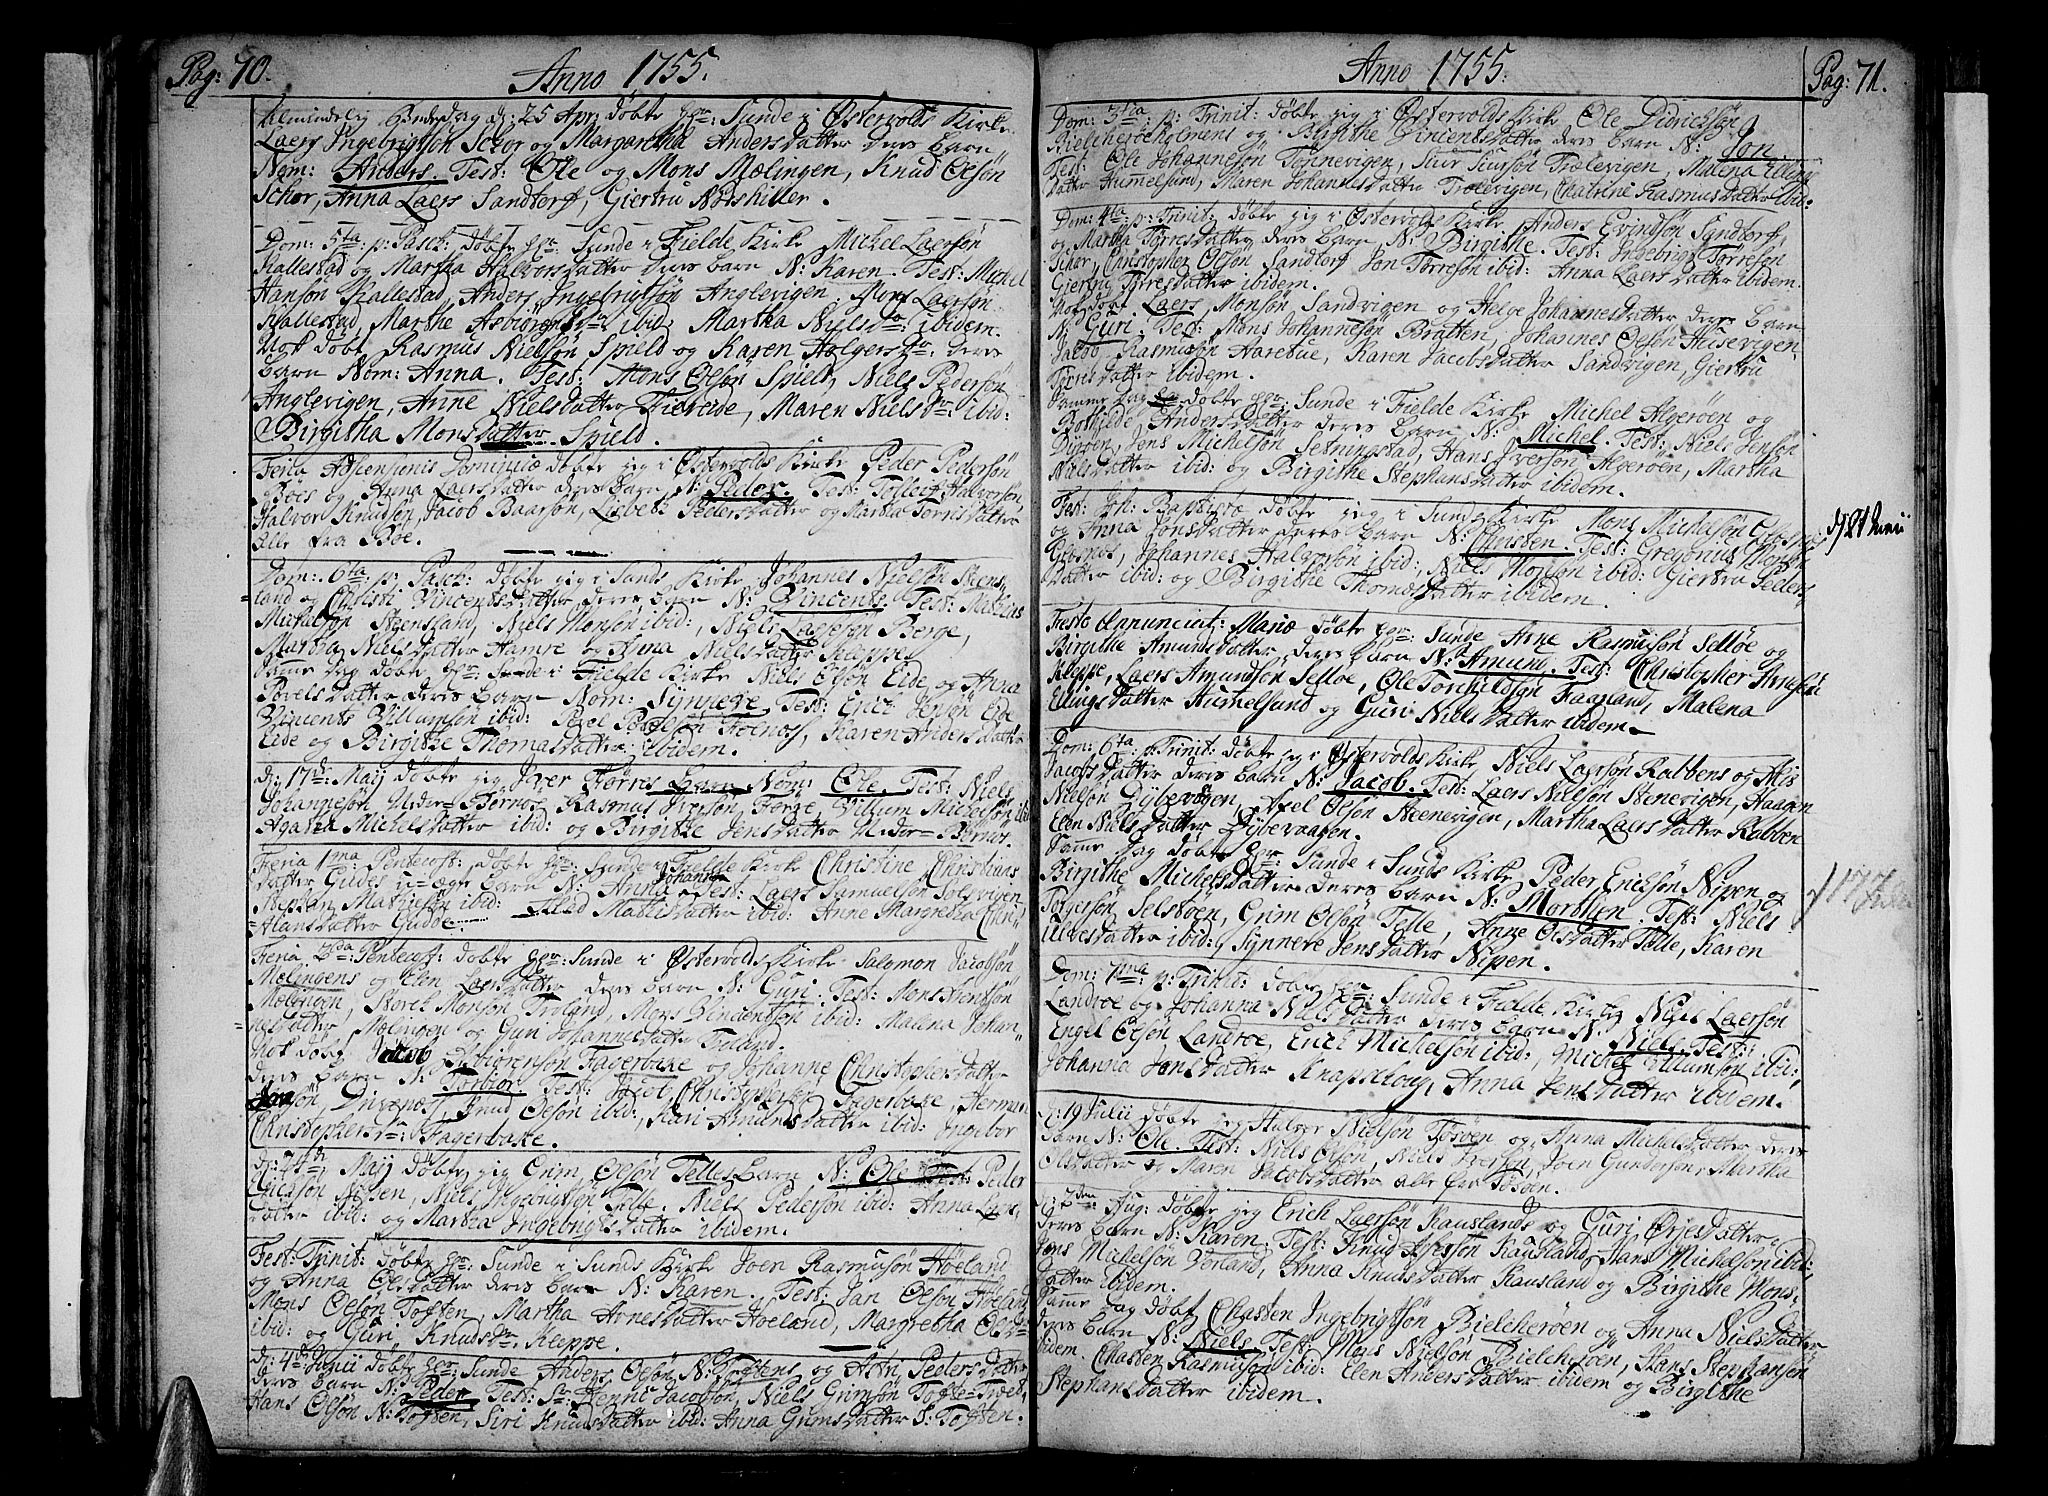 Pag: 70.
Anno 1755.
Almindelig Bededag d: 25 Apr: døbte Hr: Sunde i Østervolds Kirke
Laers Ingebrigtsøn Schor og Margaretha Andersdatter deres barn
Nom: Anders. Test: Ole og Mons Mælingen, Knud Olsøn
Schor, Anna Laers Sandtorf, Giertru
Dom: 5ta p: Pasch: døbte Hr: Sunde i Fielde Kirke Michel Laersøn
Kallestad og Martha Halvorsdatter deres barn N: Karen. Test: Michel
Hansøn Kallestad, Anders Ingebrigtsøn Anglevigen, Mons Laersøn
Kallestad, Marthe ibid: Martha Nielsdr: ibidem.
Nok døbt Rasmus Nielsøn Spield og Karen Holgersdr: deres
barn Nom: Anna. Test: Mons Olsøn Spield, Niels Pedersøn
Anglevigen, Anne Nielsdatter Maren Nielsdr: ibid:
Birgitha Monsdatter Spield.
Feria Ascensionis Dominicæ døbte jeg i Østervolds Kirke Peder Pedersøn
Bøes og Anna Laersdatter deres barn N: Peder. Test: Tolleif Halvorsøn
Halvor Knudsen, Jacob Baarsøn, Lisbeth Pedersdatter og Martha Torrisdatter
alle fra Bøe.
Dom: 6ta p: Pasch: døbte jeg i Sunds Kirke Johannes Nielsøn Steens-
=land og Christi Vincentsdatter deres barn N: Vincents. Test: Mathias
Michelsøn Steensland, Niels Monsøn ibid:, Niels Laersøn Berge,
Martha Nielsdatter Hamre og Anna Nielsdatter Kleppe.
Samme dag døbte Hr: Sunde i Fielde Kirke Niels Olsøn Eide og Anna
Povelsdatter deres barn Nom: Synneve. Test: Erich Jensøn Eide
Vincents Villumsøn ibid: Povelsøn Karen Andersdatter
Eide og Birgithe Thomasdatter ibidem.
d: 17de Maij døbte jeg Iver barn Nom: Ole. Test: Niels
Johannesøn Under-Bernes, Rasmus Iversøn, Villum Michelsøn ibid
Agatha Michelsdatter ibid: og Birgithe Jensdatter Under-Bernes.
Feria 1ma Pentecost: døbte Hr: Sunde i Fielde Kirke Christine Christians
datter Guldes u-ægte barn N: Anna Johanna. Test: Laers Samuelsøn Solsvigen
Stephan Mathisøn ibid: Mathisdatter ibid: Anne Margretha Chri
=Hansdatter
Feria døbte Hr: Sunde i Østervolds Kirke Salomon Jacobsøn
Mælingens og Elen Laersdatter deres barn N: Guri. Test: Mons
Mælingen, Monsøn Troland, Mons Vincentsøn ibid: Malena Johan
=nesdatter Mælingen og Guri Johannesdatter Troland.
Nok døbt Jacob Asbiørensøn Fagerbake og Johanne Christophersdatter
deres barn N: Torbiør. Test: Jacob Christophersøn Fagerbake, Herman
Knud Olsøn ibid: Kari Amundsdatter ibid: Ingebor
Christophersdr: Fagerbake.
d: Maij døbte jeg Grim Olsøn Telles barn N: Ole Test: Peder
Ericksøn Nipen, Niels Ingebrigtsøn Telle. Niels Pedersøn ibid: Anna Laers
datter ibid: og Martha Ingebrigtsdatter ibidem.
Fest: Trinit: døbte Hr: Sunde i Sunds Kirke Joen Rasmusøn Høeland
og Anna Olesdatter deres barn N: Karen. Test: Jan Olsøn Høeland
Mons Olsøn Tofften, Martha Arnesdatter Høeland, Margretha Olsdr
ibid: og Guri Knudsdr. Kleppe.
d: 4de Junii døbte Hr: Sunde Anders Olsøn N: Tofftens og Astri Pedersdatter
deres barn N: Peder. Test: Sr: Jacobsøn, Niels Grimsøn
Hans Olsøn N: Tofften, Siri Knudsdatter ibid: Anna Grimsdatter S: Toften.
Anno 1755.
Pag: 71.
Dom: 3tia p: Trinit: døbte jeg i Østervolds Kirke Ole Didrichsøn
Bielcherøeholmens og Birgithe Vincentsdatter deres barn N: Jon
Test: Ole Johannesøn Tønnevigen, Siur Siursøn Trælevigen, Malena Ellings
datter Hummelsund, Maren Johannesdatter Trælevigen, Chatrine Rasmusdatter ibid:
Dom: 4ta p: Trinit: døbte jeg i Østervolds Kirke Anders Evindsøn Sandtorf
og Martha Torresdatter deres barn, N: Birgithe. Test: Ingebrigt Torresøn
Schar, Christopher Olsøn Sandtorf Jon Torresøn ibid: Anna Laersdatter ibidem.
Giertru Torresdatter ibidem.
Nok døbt Laers Monsøn Sandvigen og Helge Johannesdatter deres barn
N: Guri. Test: Mons Johannesøn Bratten, Johannes Olsøn Hilsevigen,
Jacob Rasmusøn Aaretue, Karen Jacobsdatter Sandvigen, Giertru
Torrisdatter ibidem.
Samme Dag døbte Hr: Sunde i Fielde Kirke Michel Algerøen og
Bothilde Andersdatter deres barn N: Michel. Test: Niels Jensøn
Dyrøen, Jens Michelsøn Setningstad, Hans Iversøn Algerøen, Martha
Nielsdatter ibid: og Birgithe Stephansdatter ibidem.
Fest: Joh: Baptistæ døbte jeg i Sunds Kirke Mons Michelsøn
og Anna Jonsdatter deres barn N: Christen. Test: Gregorius
Johannes Halvorsøn ibid:, Niels Monsøn ibid: Giertru Peders
datter ibid: og Birgithe Thomasdatter ibidem.
Festo Annunciat: Mariæ døbte Hr: Sunde Arne Rasmusøn Selløe og
Birgithe Amundsdatter deres barn N: Amund. Test: Christopher Arnesøn
Kleppe, Laers Amundsøn Selløe, Ole Torchildsøn Malena
Ellingsdatter Hummelsund og Guri Nielsdatter ibidem.
Dom: 6ta p: Trinit: døbte jeg i Østervolds Kirke, Niels Laersøn Rabbens og Alis
Jacobsdatter deres barn N: Jacob. Test: Laers Nielsøn Stenevigen, Haagen
Nielsøn Dybevogen, Axel Olsøn Steenevigen, Martha Laersdatter Rabben
Elen Nielsdatter Dybevaagen.
Samme Dag døbte Hr: Sunde i Sunds Kirke Peder Ericksøn Nipen og
Birgithe Michelsdatter deres barn N: Morthen. Test: Niels
Torgersøn Selstøen, Grim Olsøn Telle, Anne Olsdatter Telle, Karen
Ulvesdatter ibid:, Synneve Jensdatter Nipen.
Dom: 7ma p: Trinit: døbte Hr: Sunde i Fielde Kirke Niels Laersøn
Landrøe og Johanna Nielsdatter deres barn N: Niels. Test:
Engel Olsøn Landroe, Erich Michelsøn ibid:, Michel Villumsøn ibid:,
Johanna Jonsdatter Knapskog, Anna Jensdatter ibidem.
d: 19 Julii døbte jeg Halvor Nielsøn Tøsøen og Anna Michelsdatter deres
barn N: Ole. Test: Niels Olsøn, Niels Iversøn, Joen Gundersøn, Martha
Olsdatter og Maren Jacobsdatter alle fra Tøsøen.
Aug: døbte jeg Erich Laersøn Kauslands og Guri
deres barn N: Karen. Test: Knud Kausland, Hans Michelsøn ibid:
Jens Michelsøn Anna Knudsdatter Kausland og Birgithe Mons
datter ibidem.
Samme Dag døbt Chasten Ingebrigtsøn Bielcherøen og Anna Nielsdatter
deres barn N: Niels. Test: Mons Nielsøn Bielcherøen, Hans Stephansøn
ibidem. Chasten Rasmusøn ibid: Elen Andersdatter ibidem og Birgithe
Stephansdatter ibidem.